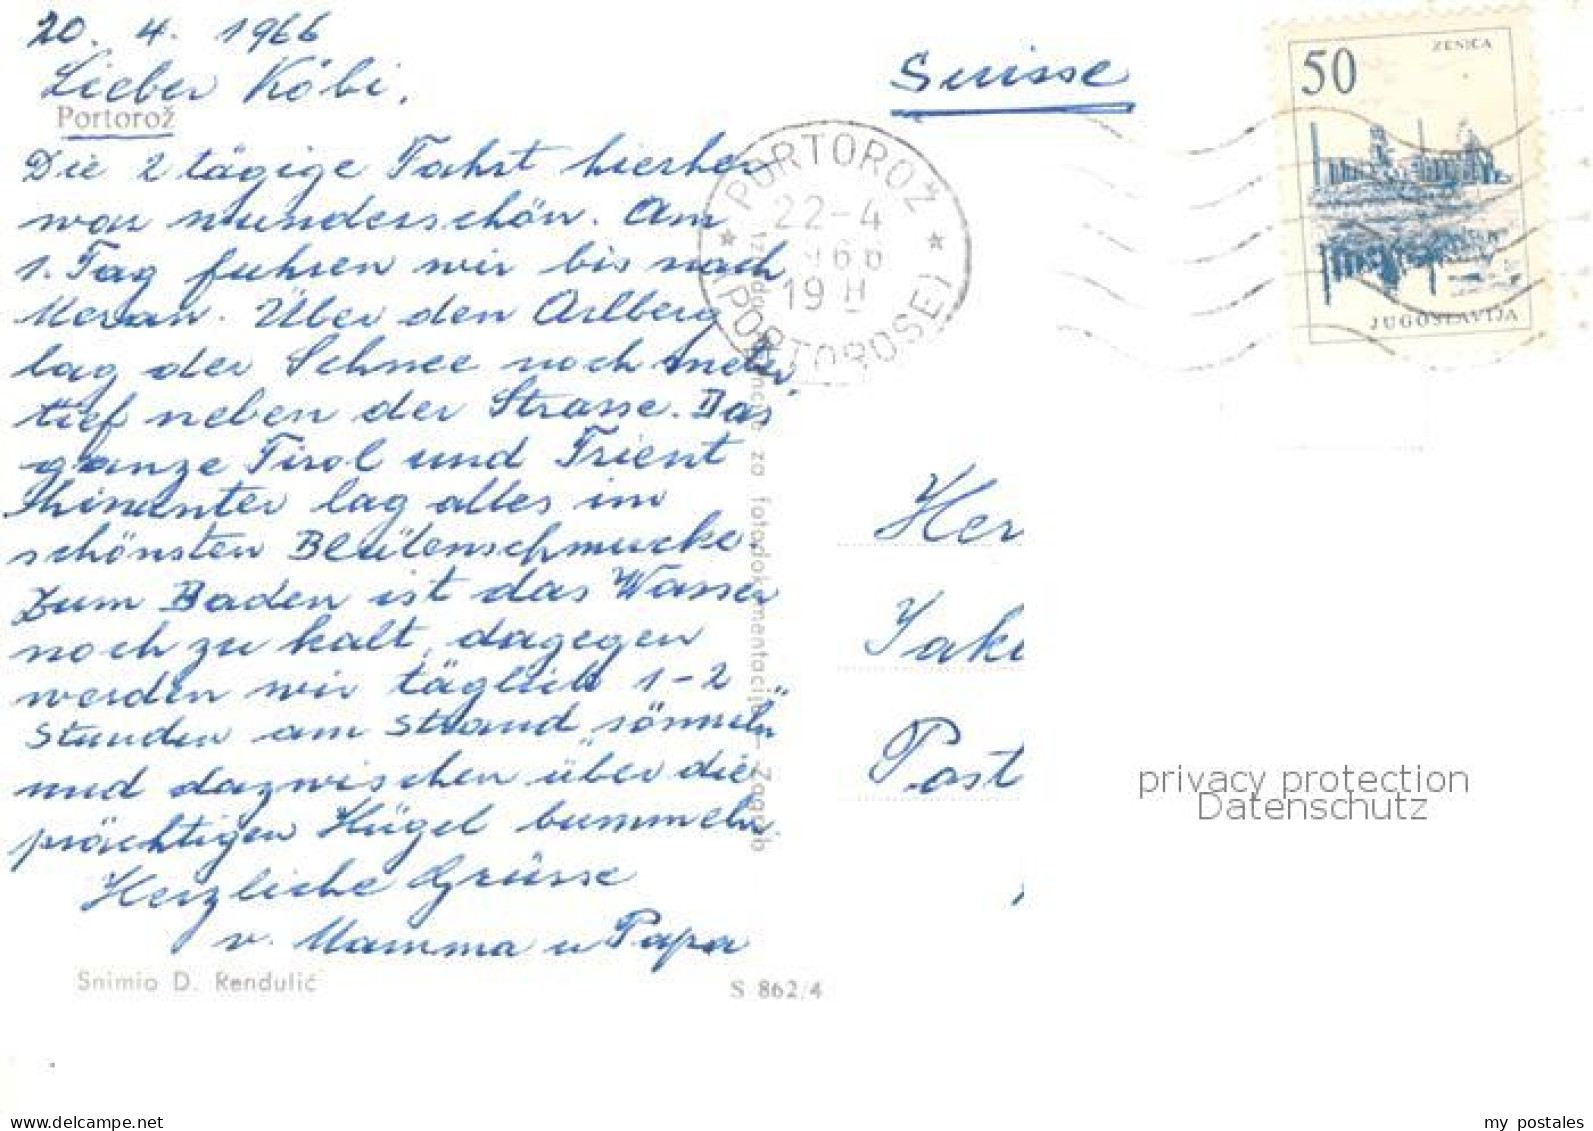 20. 4. 1966
Lieber Köbi,
Portorož
Die 2 tägige Fahrt hierher
war wunderschön. Am
1. Tag fuhren wir bis nach
Meran. Über den Arlberg
lag der Schnee noch meter
tief neben der Strasse. Das
ganze Tirol und Trient
hinunter lag alles im
schönsten Blütenschmucke.
Zum Baden ist das Wasser
noch zu kalt, dagegen
werden wir täglich 1-2
Stunden am Strand "sönneln"
und dazwischen über die
prächtigen Hügel bummeln.
Herzliche Grüsse
v. Mamma u Papa
Snimio D. Rendulić
S 862/4
za fotodokumentaciju - Zagreb
PORTOROŽ
22-4
1966
19 H
(PORTOROSE)
Suisse
50
ZENICA
JUGOSLAVIJA
Her
Jak
Post
privacy protection
Datenschutz
www.delcampe.net
my_postales